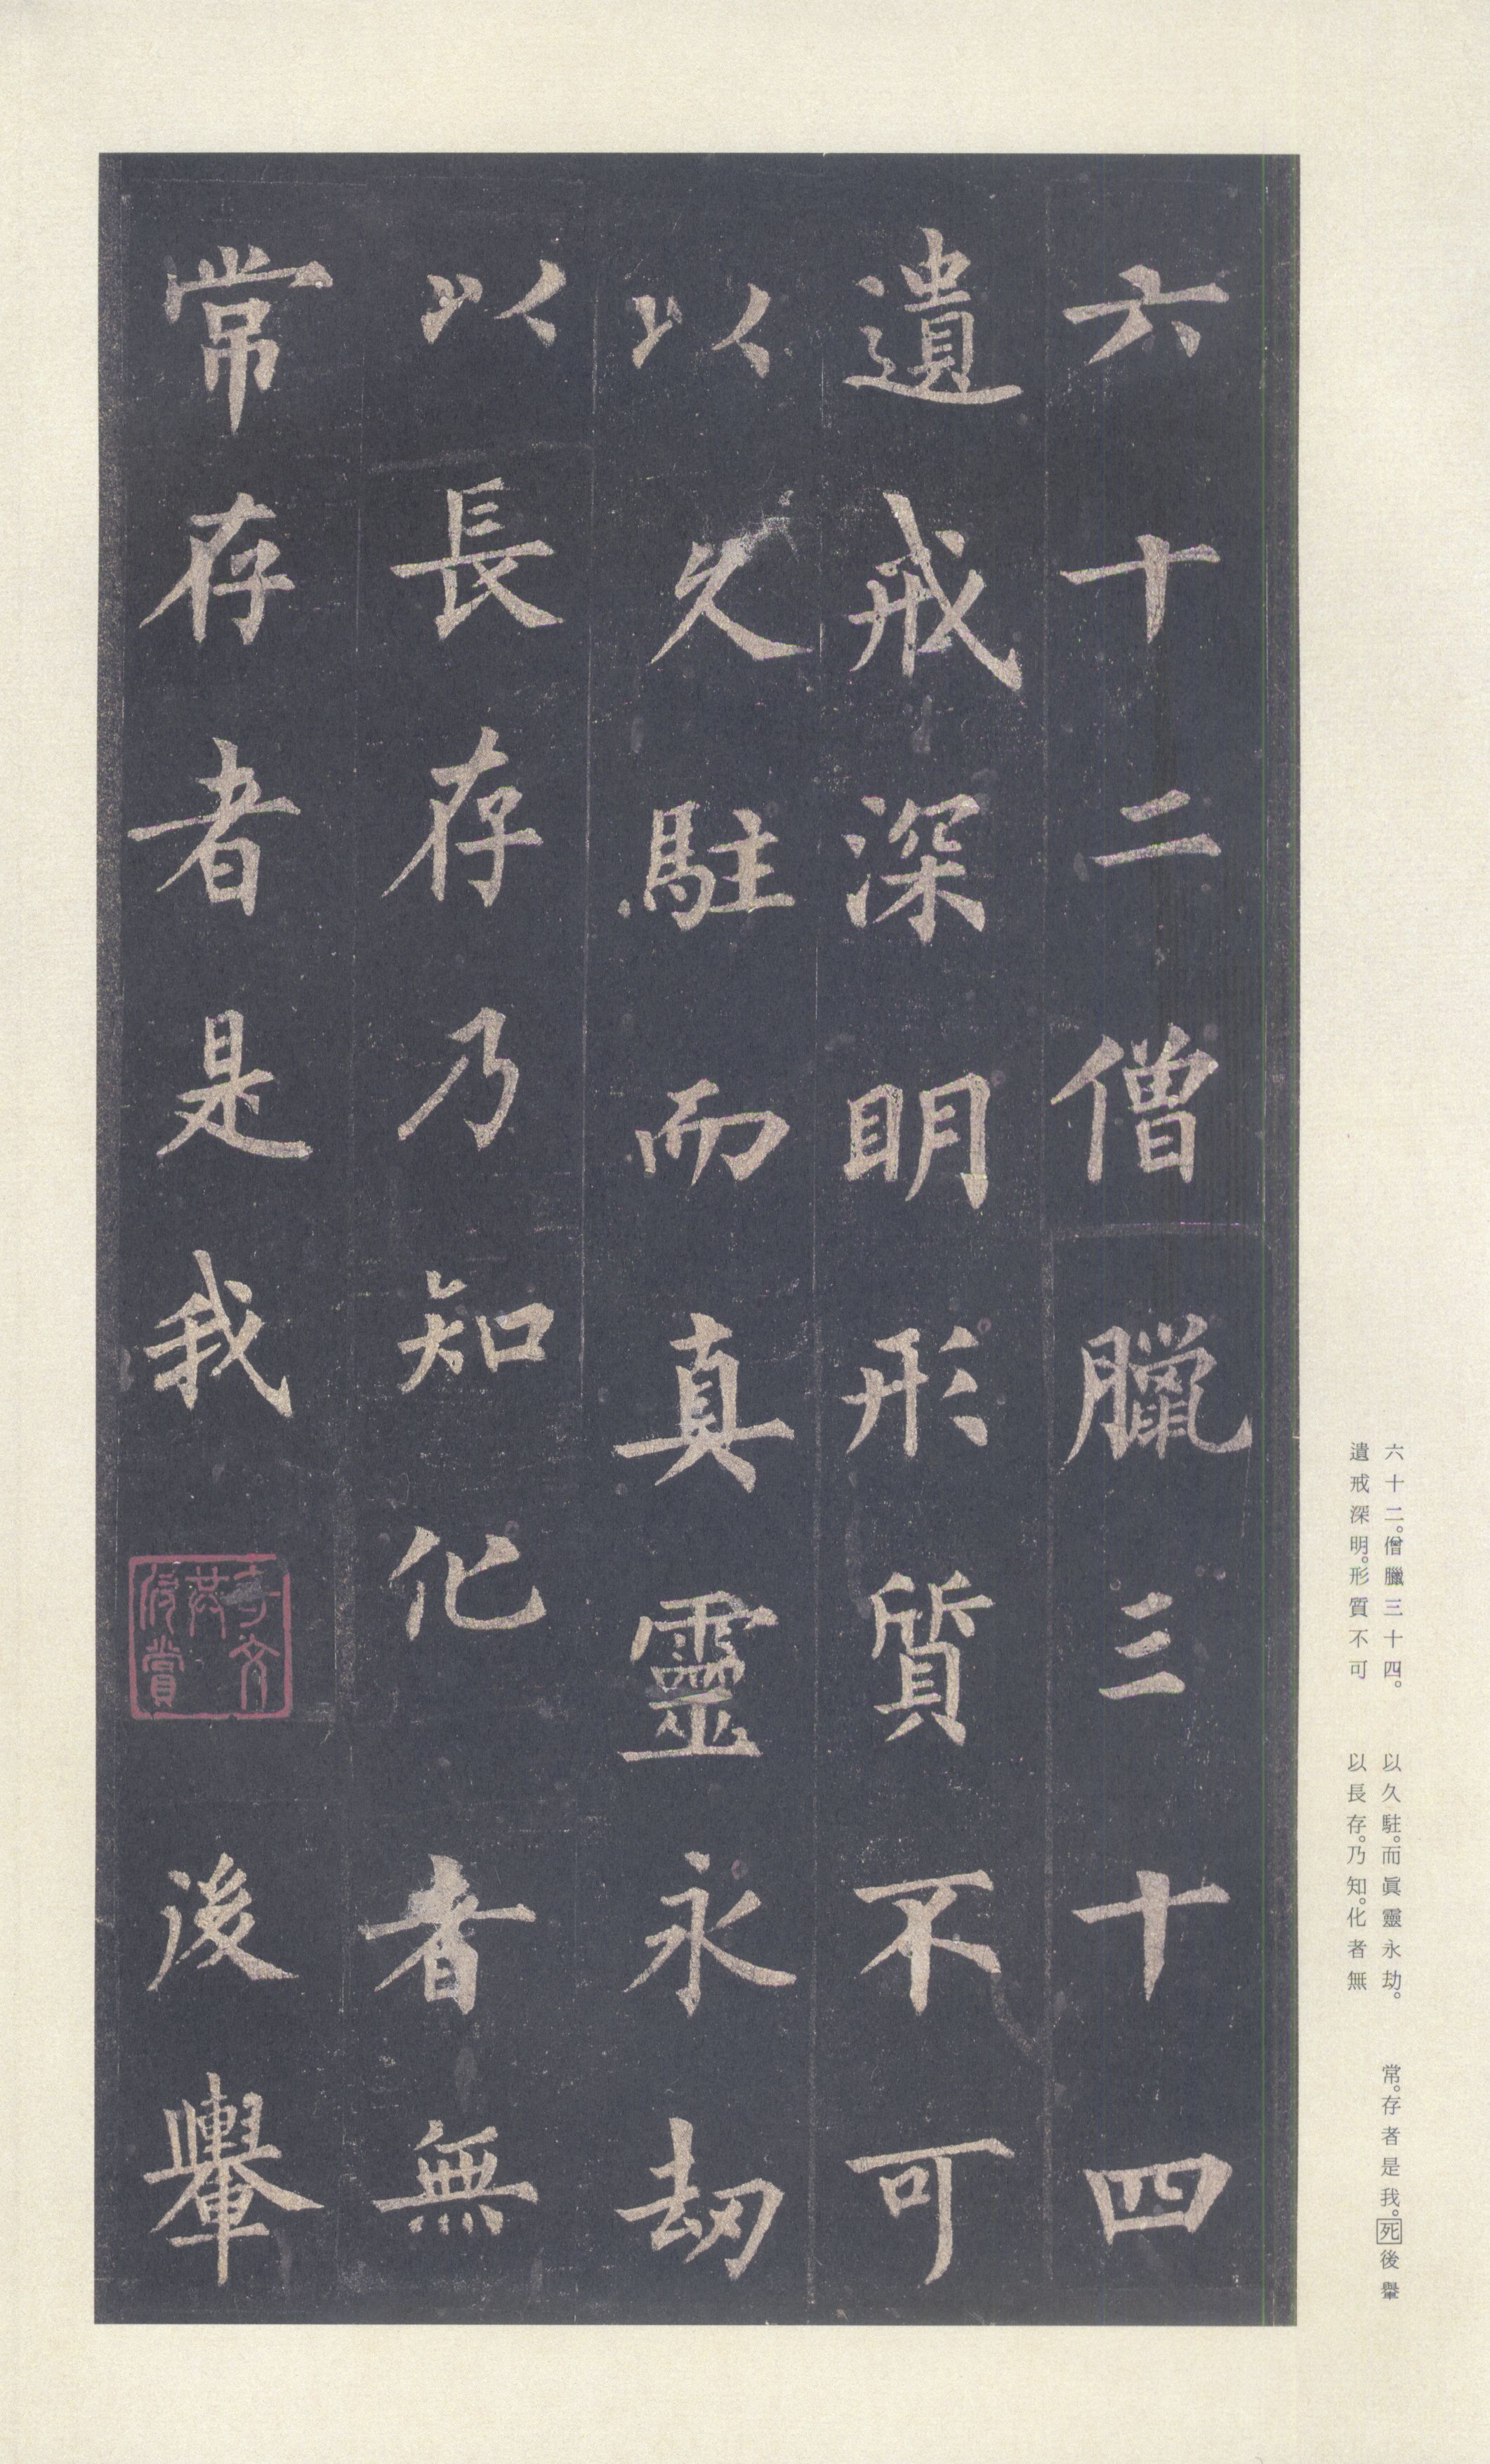 六十二僧臘三十四
遺戒深明形質不可
以久駐而真靈永刧
以長存乃知化者無
常存者是我後轝
奇文共欣賞
六十二。僧臘三十四。
遺戒深明。形質不可
以久駐。而眞靈永劫。
以長存。乃知。化者無
常。存者是我。死後轝